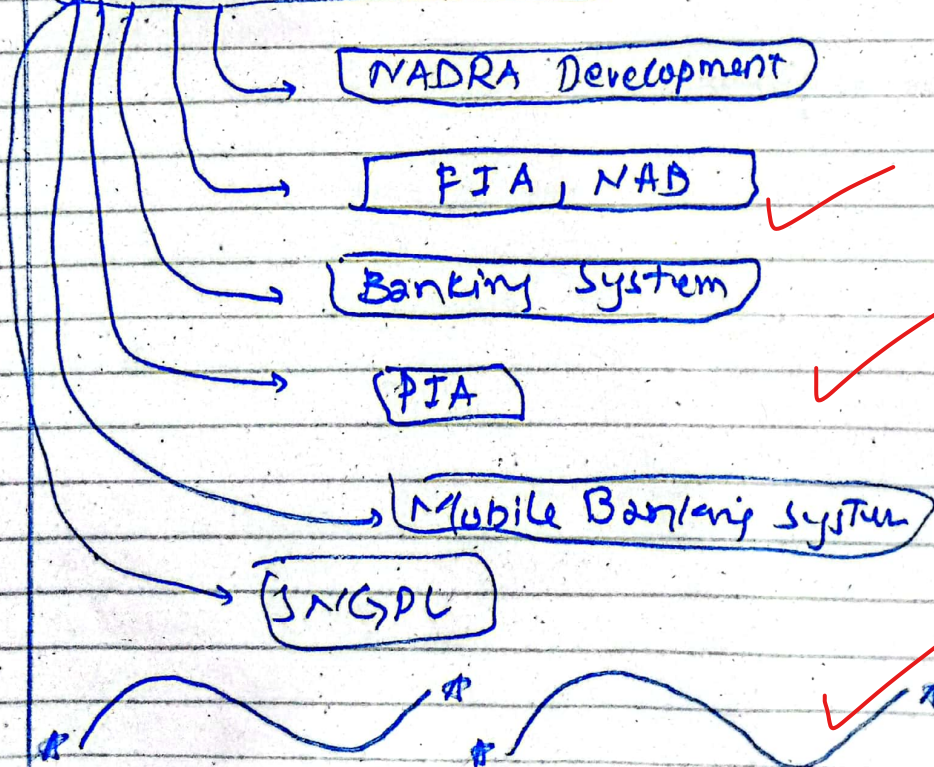 NADRA Development
FIA, NAB
Banking System
PIA
Mobile Banking System
SNGPL